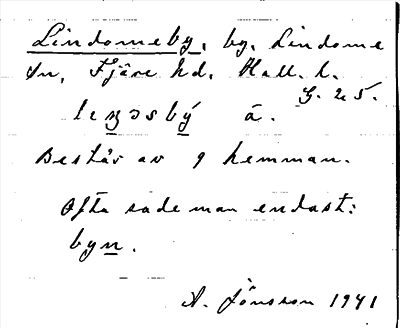 Lindomeby, by, Lindome
sn, Fjäre hd, Hall. l.
G. 25.
á.
Består av 9 hemman.
Ofta sade man endast:
byn.
A. Jönsson 1941